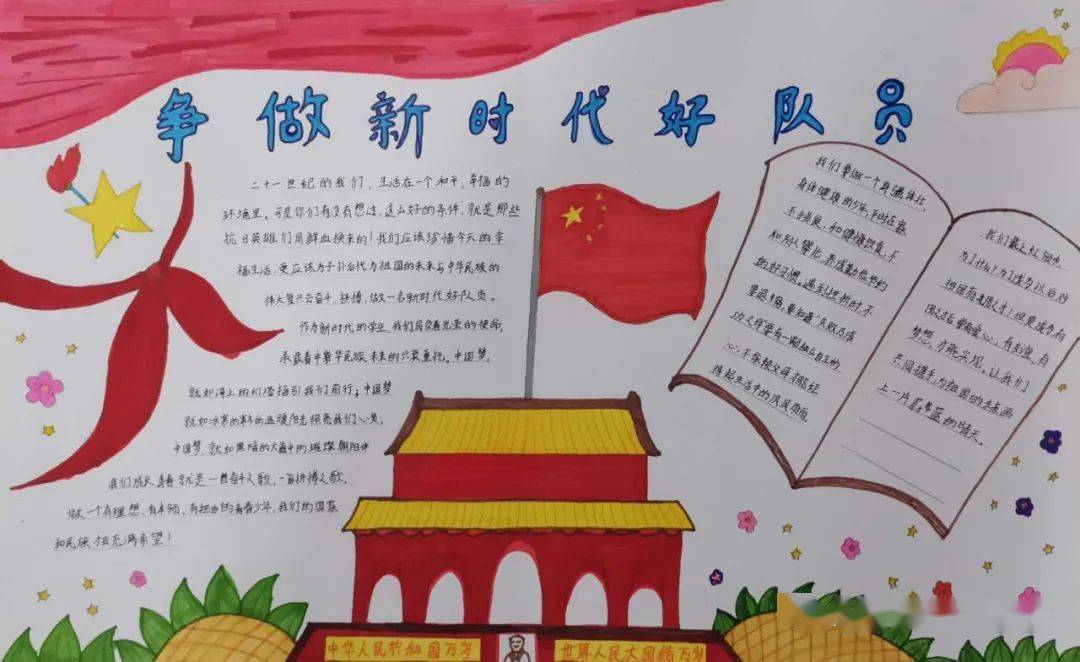 争做新时代好队员
二十一世纪的我们、生活在一个和平，幸福的
环境里、可是你们有没有想过，这么好的条件、就是那些
抗日英雄们用鲜血换来的！我们应该珍惜今天的幸
福生活，更应该为子孙后代为祖国的未来与中华民族的
伟大复兴去奋斗，拼搏，做一名新时代好队员。
作为新时代的学生，我们肩负着光荣的使命，
承载着中华民族未来的兴衰重托。中国梦，
就如海上的灯塔指引我们前行；中国梦
就如冰寒的温暖阳光照亮我们心灵；
中国梦，就如黑暗的大海中的璀璨朝阳伴
我们成长 青春就是一首奋斗之歌，一首拼搏之歌。
做一个有理想、有本领、有担当的青春少年，我们的国家
和民族 充满希望！
我们要做一个身强体壮，
身体健康的少年，不时在家
不挑食，和健康饮食，不
和别人攀比，养成勤俭节约
的好习惯。遇到挫折时不
要退缩，要知道“失败乃成
功之母”要有一颗独立自主的
心，不依赖父母才能经
得起生活中的风风雨雨。
我们戴上红领巾，
为了什么？为了成为以后对
祖国有用之才！但是成为有
用之才后要有爱心，有知识，有
梦想，才能实现。让我们
共同携手为祖国的未来画
上一片蓝的晴天。
中华人民共和国万岁
世界人民大团结万岁